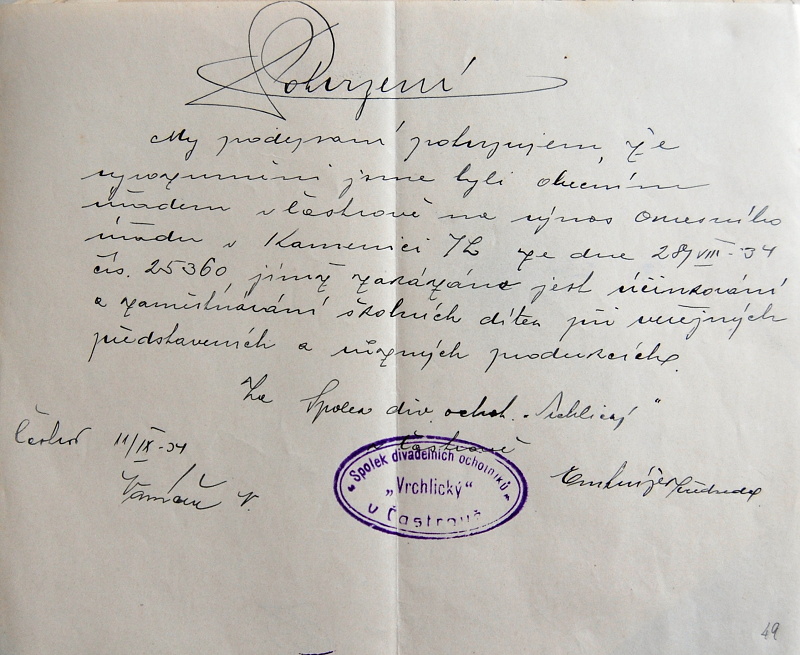 Potvrzení
My podepsaní potvrzujem, že
vyrozuměni jsme byli obecním
úřadem v Častrově na výnos Okresního
úřadu v Kamenici /L ze dne 28/VIII-34
čís. 25360 jímž zakázáno jest účinkování
a zaměstnávání školních dítek při veřejných
představeních a různých produkcích.
Za Spolek div. ochot. „Vrchlický"
v Častrově
Častrov 11/IX-34
Spolek divadelních ochotníků
„Vrchlický"
v Častrově
předseda
49